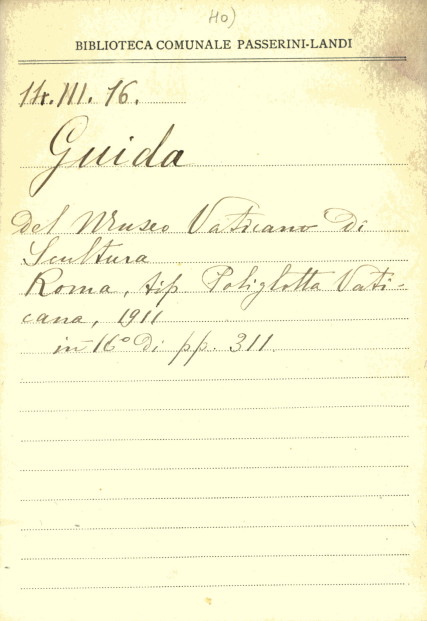 HO)
BIBLIOTECA COMUNALE PASSERINI-LANDI
14.III.16.
Guida
del Museo Vaticano di
Scultura
Roma, tip Poliglotta Vati-
cana, 1911
in 16° di pp. 311.